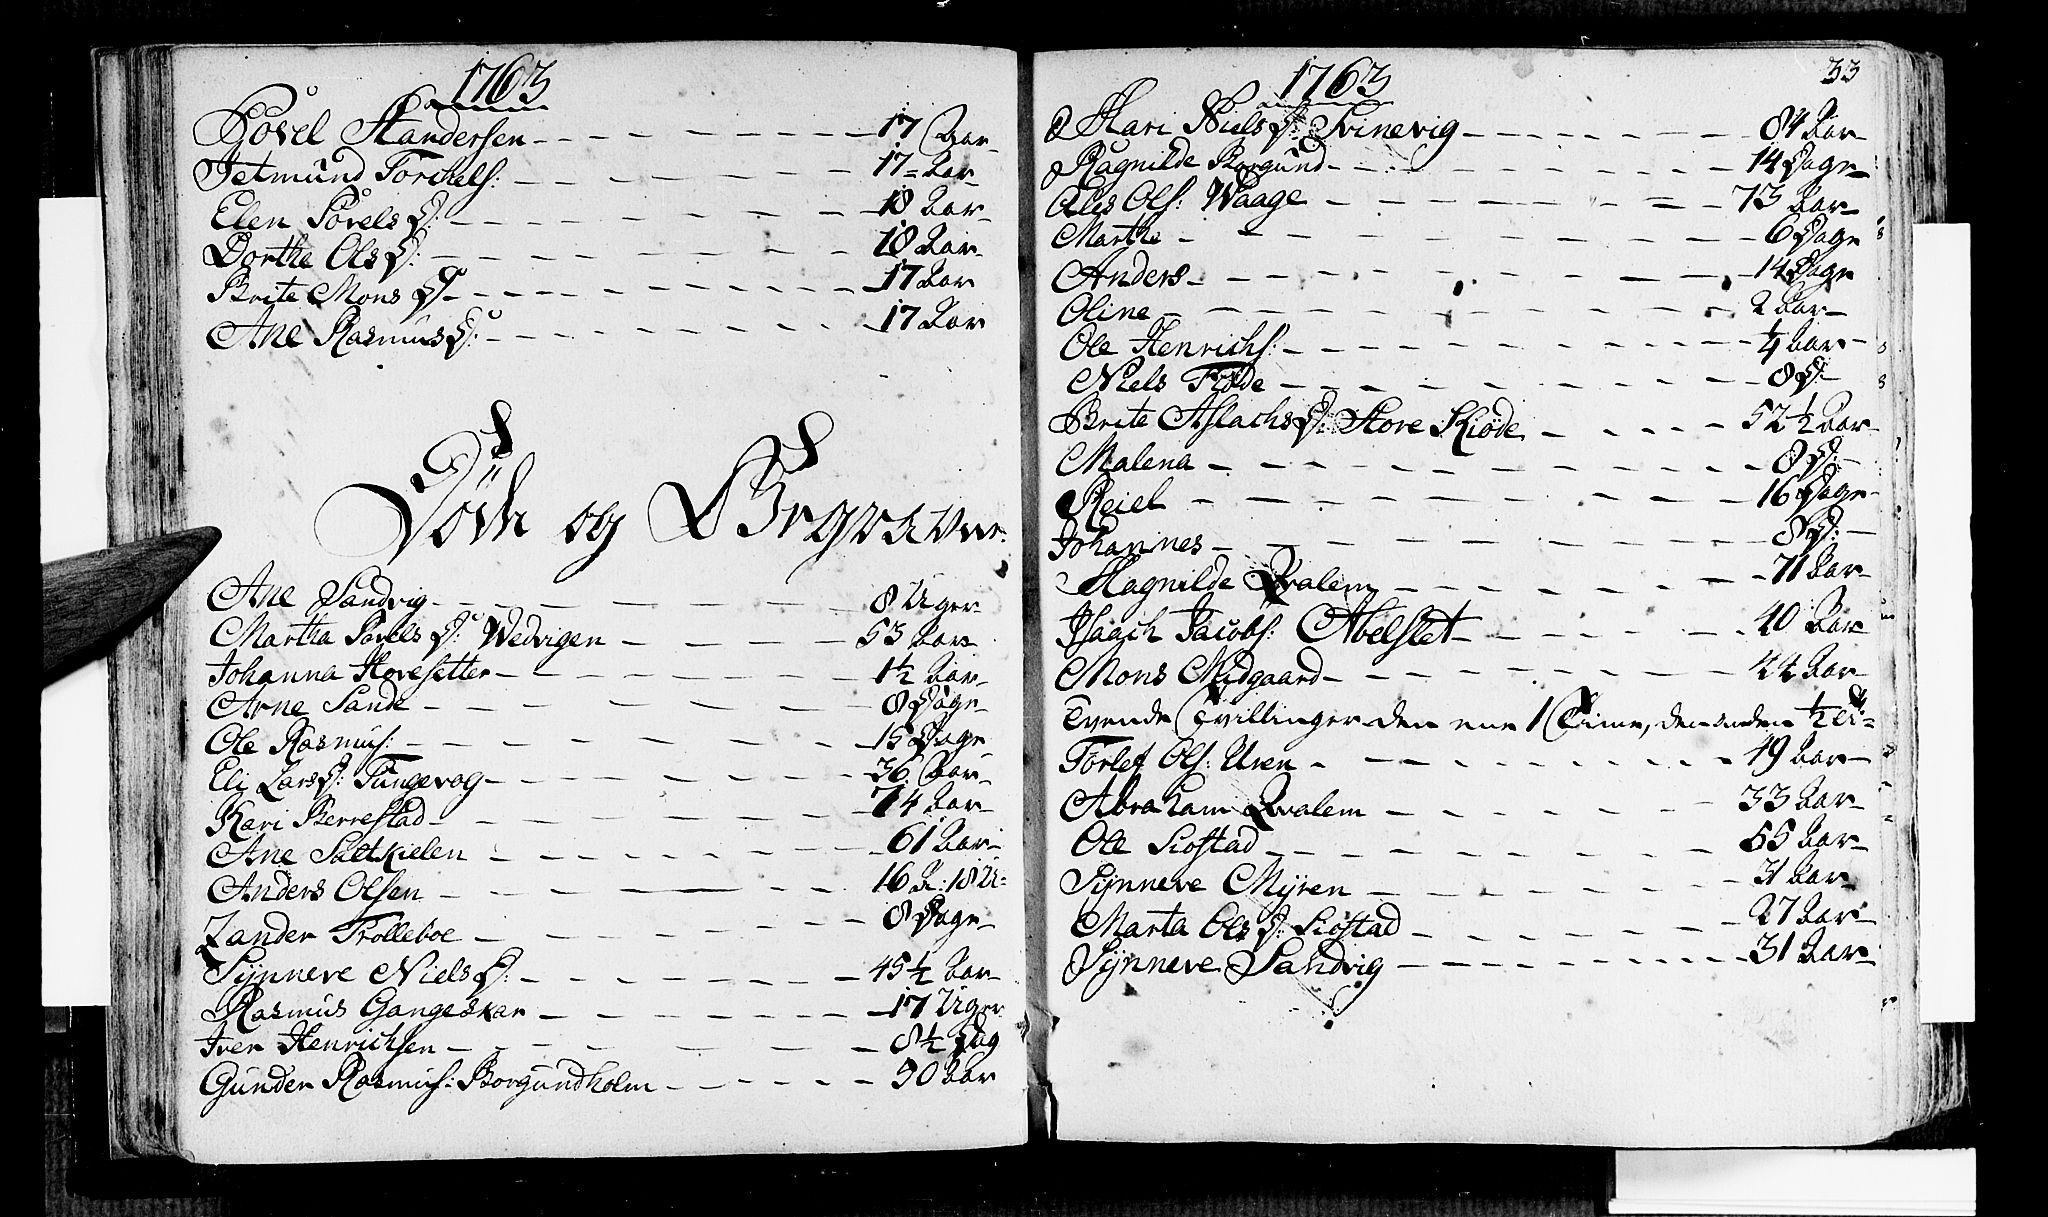 1763
Povel Standersen 17 Aar
Jetmund Torchels: 17 Aar
Elen Povels D: 18 Aar
Dorthe Ols D: 18 Aar
Brite Mons D: 17 Aar
Ane Rasmus D: 17 Aar
Döde og Begravne:
Ane Sandvig 8 Uger
Martha Povels D: Wedvigen 53 Aar
Johanna Hovesetter 1½ Aar
Arne Sande 8 Dage
Ole Rasmus: 15 Dage
Eli Lars D: Tungevog 36 Aar
Kari Berrestad 74 Aar
Ane Saltkielen 61 Aar
Anders Olsen 16 A: 18 U:
Zander Trolleboe 8 Dage
Synneve Niels D: 45½ Aar
Rasmus Gangeskar 17 Uger
Iver Henrichsen 8½ Dag
Gunder Rasmus: Borgundholm 50 Aar
1763 33
Kari Niels D: Svinevig 84 Aar
Ragnilde Borgund 14 Dage
Ales Ols: Waage 73 Aar
Marthe 6 Dage
Anders 14 Dage
Oline 2 Aar
Ole Henrichs: ¼ Aar
Niels Fiöde 8 D:
Brite Aslachs D: Store Kiöde 52½ Aar
Malena 8 D:
Reiel 16 Dage
Johannes 8 D:
Magnilde Qvalem 71 Aar
Isaach Jacobs: Abelset 40 Aar
Mons Midgaard 44 Aar
Tvende Tvillinger den ene 1 Time, den anden ½ Ti:
Torlef Ols: Uren 49 Aar
Abraham Qvalem 33 Aar
Ole Siöstad 55 Aar
Synneve Myren 31 Aar
Marta Ols D: Siöstad 27 Aar
Synneve Sandvig 31 Aar